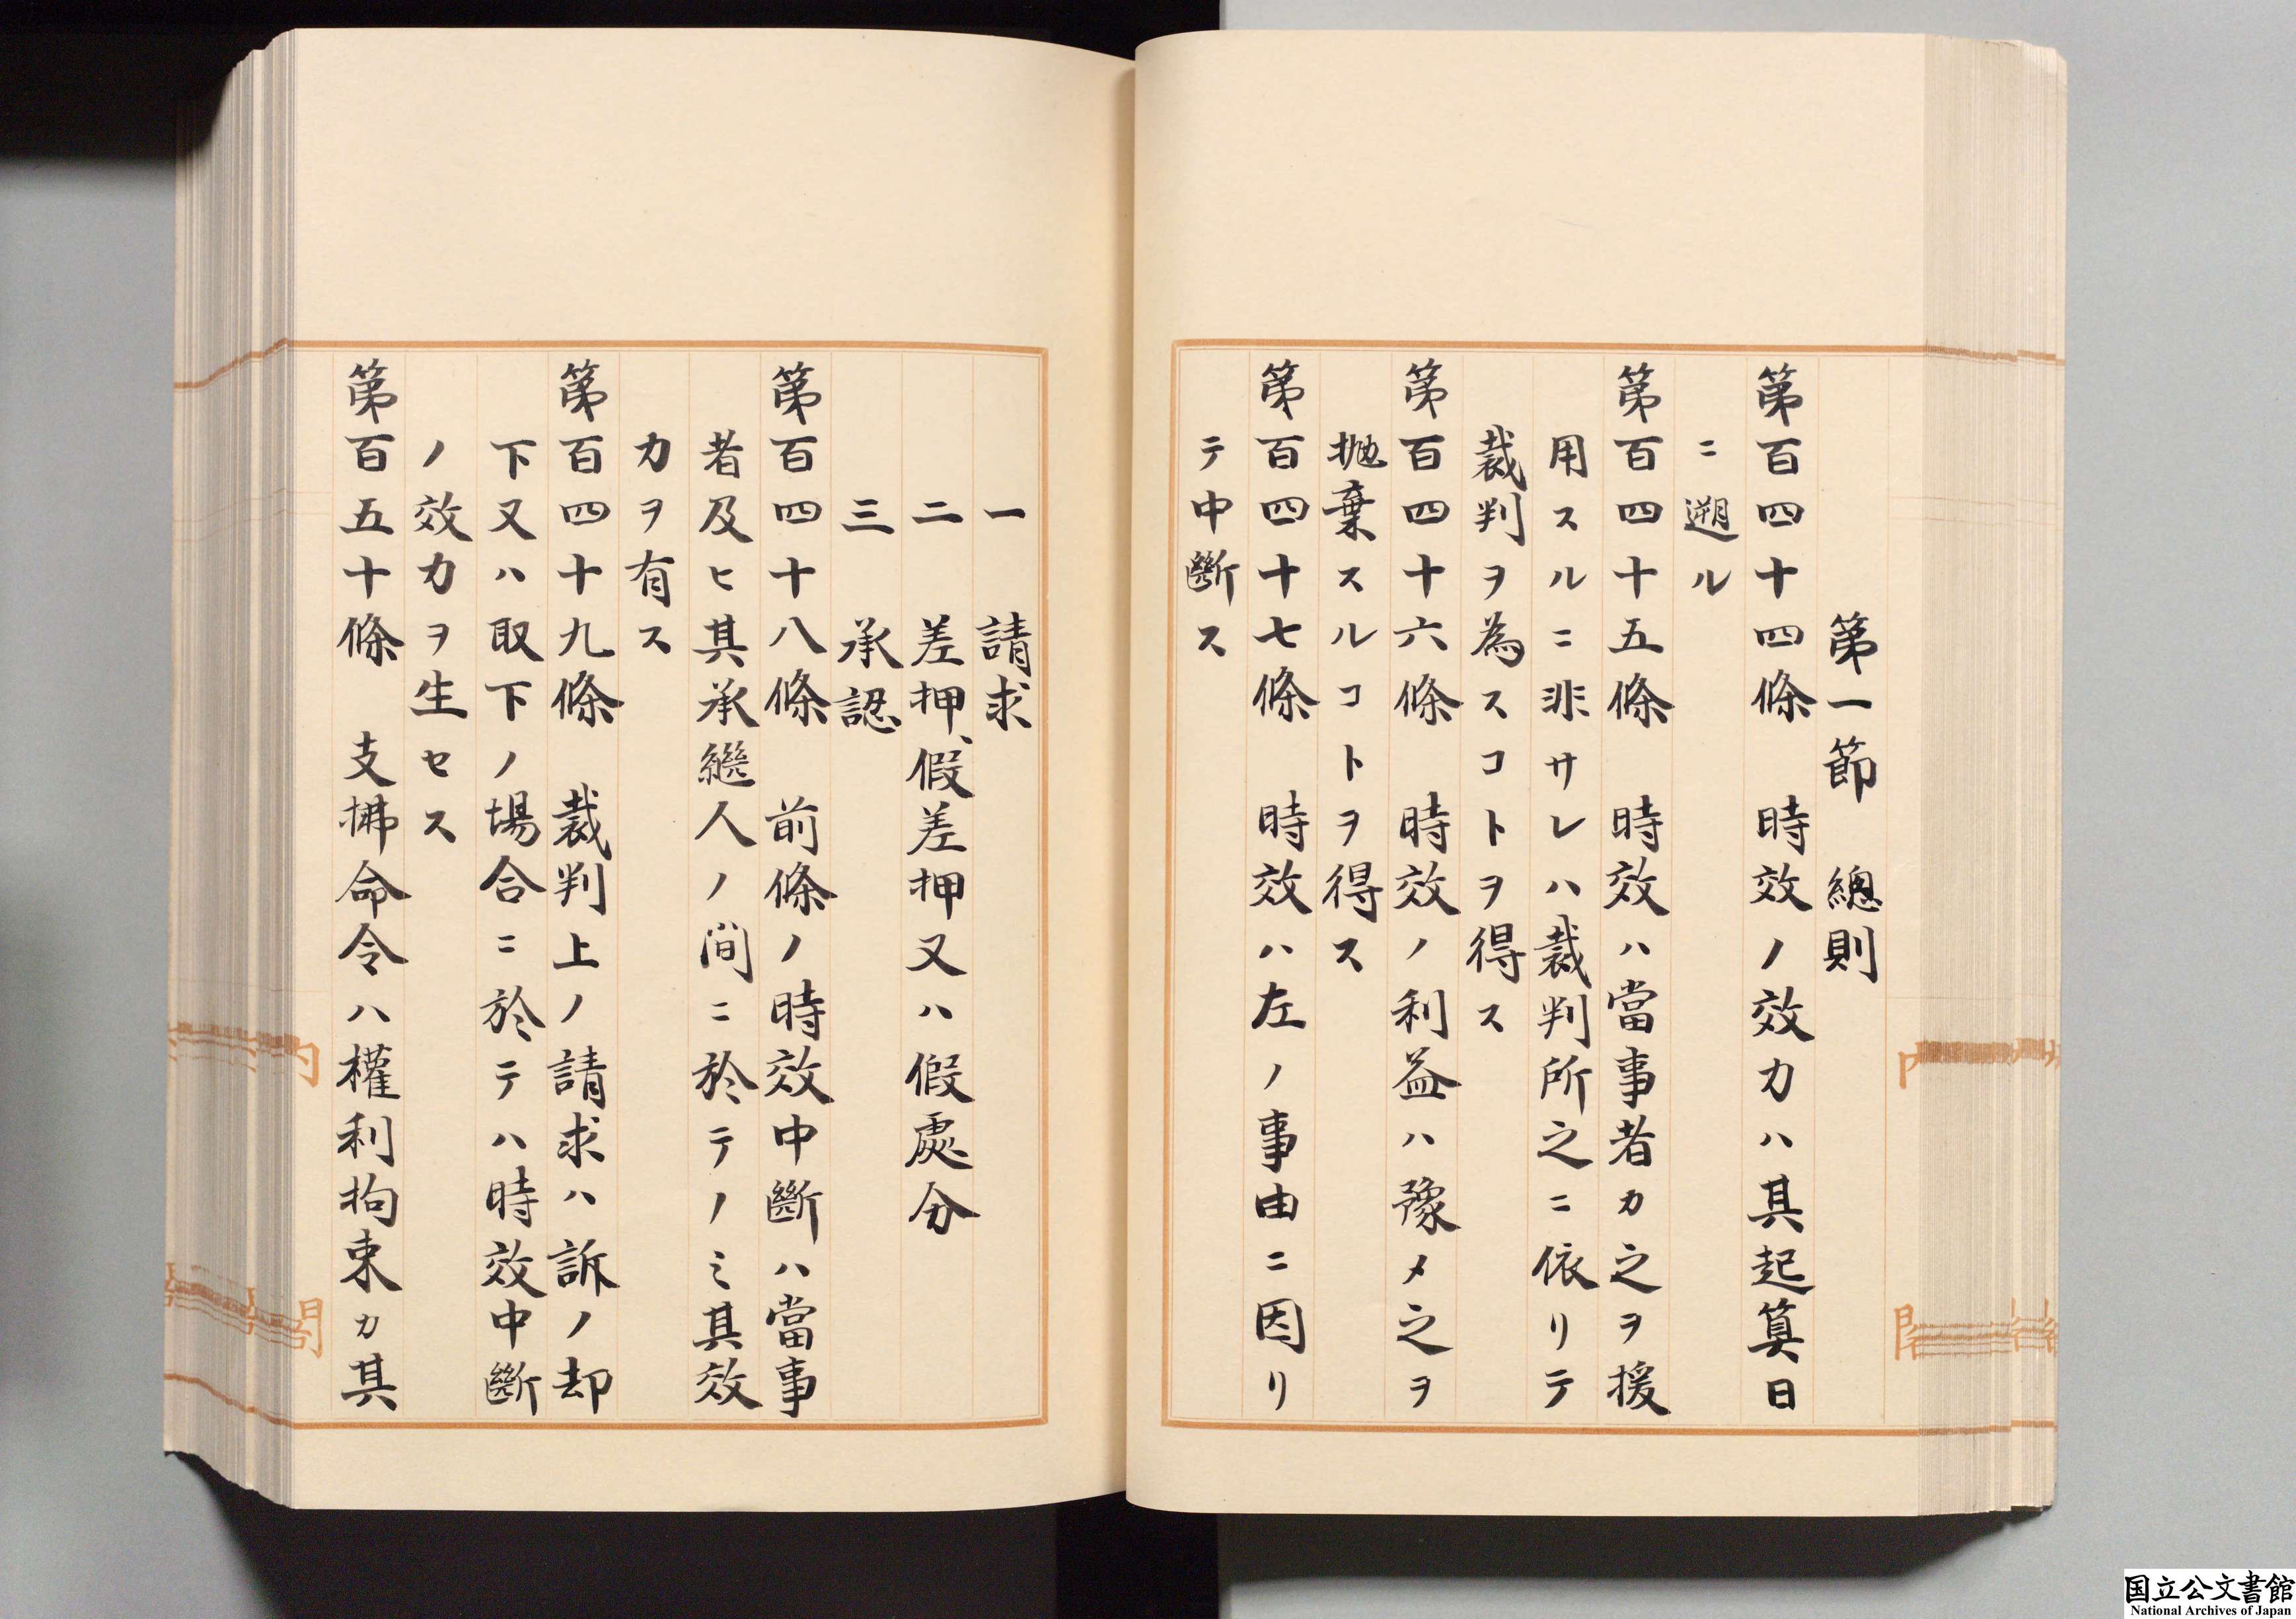 第一節　總則
第百四十四條　時效ノ效力ハ其起算日
ニ遡ル
第百四十五條　時效ハ當事者カ之ヲ援
用スルニ非サレハ裁判所之ニ依リテ
裁判ヲ為スコトヲ得ス
第百四十六條　時效ノ利益ハ豫メ之ヲ
拋棄スルコトヲ得ス
第百四十七條　時效ハ左ノ事由ニ因リ
テ中斷ス
一　請求
二　差押、假差押又ハ假處分
三　承認
第百四十八條　前條ノ時效中斷ハ當事
者及ヒ其承繼人ノ間ニ於テノミ其效
力ヲ有ス
第百四十九條　裁判上ノ請求ハ訴ノ却
下又ハ取下ノ場合ニ於テハ時效中斷
ノ效力ヲ生セス
第百五十條　支拂命令ハ權利拘束カ其
国立公文書館
National Archives of Japan